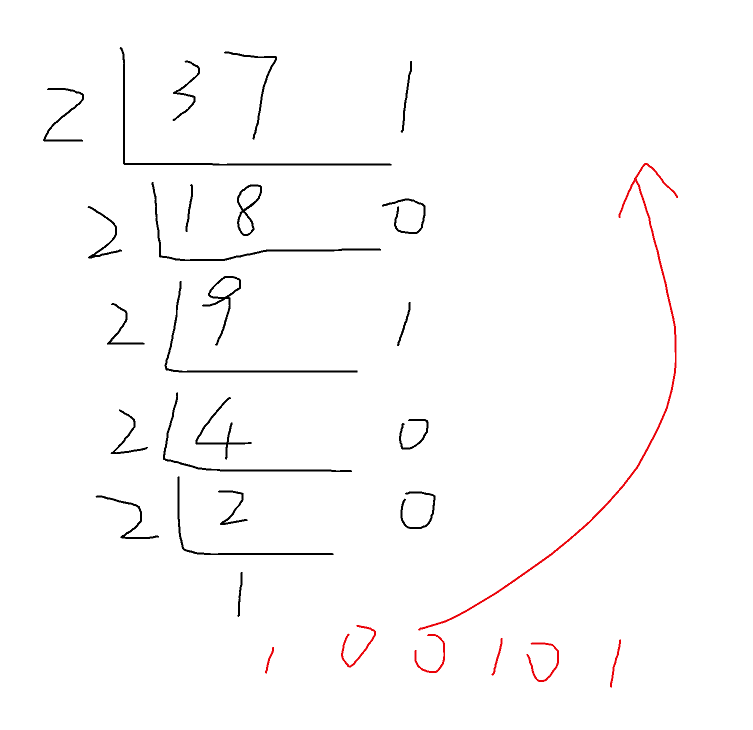 2 37 1
2 18 0
2 9 1
2 4 0
2 2 0
1
1 0 0 1 0 1